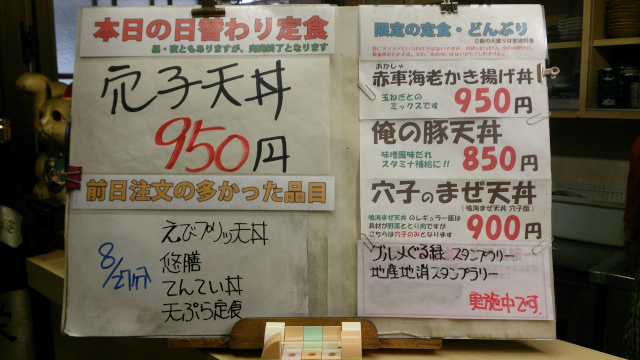 本日の日替わり定食
昼・夜ともありますが、売切終了となります
穴子天丼
950円
前日注文の多かった品目
8/27分
えびプリッ天丼
悠膳
てんてい丼
天ぷら定食
限定の定食・どんぶり
ご飯の大盛りは別途料金
あかしゃ
赤車海老かき揚げ丼
玉ねぎとの
ミックスです
950円
俺の豚天丼
味噌風味だれ
スタミナ補給に!!
850円
穴子のまぜ天丼
(鳴海まぜ天丼 穴子版)
鳴海まぜ天丼 のレギュラー版は
具材が野菜ととり肉ですが
こちらは穴子のみとなります
900円
グルメぐる緑 スタンプラリー
地産地消スタンプラリー
実施中です